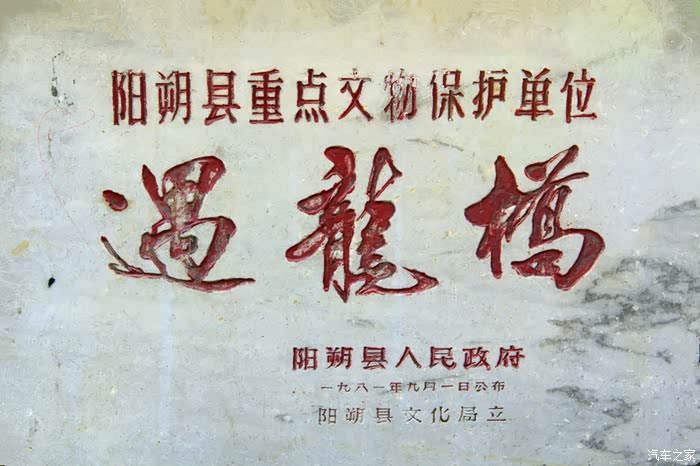 阳朔县重点文物保护单位
遇龍橋
阳朔县人民政府
一九八一年九月一日公布
阳朔县文化局立
汽车之家